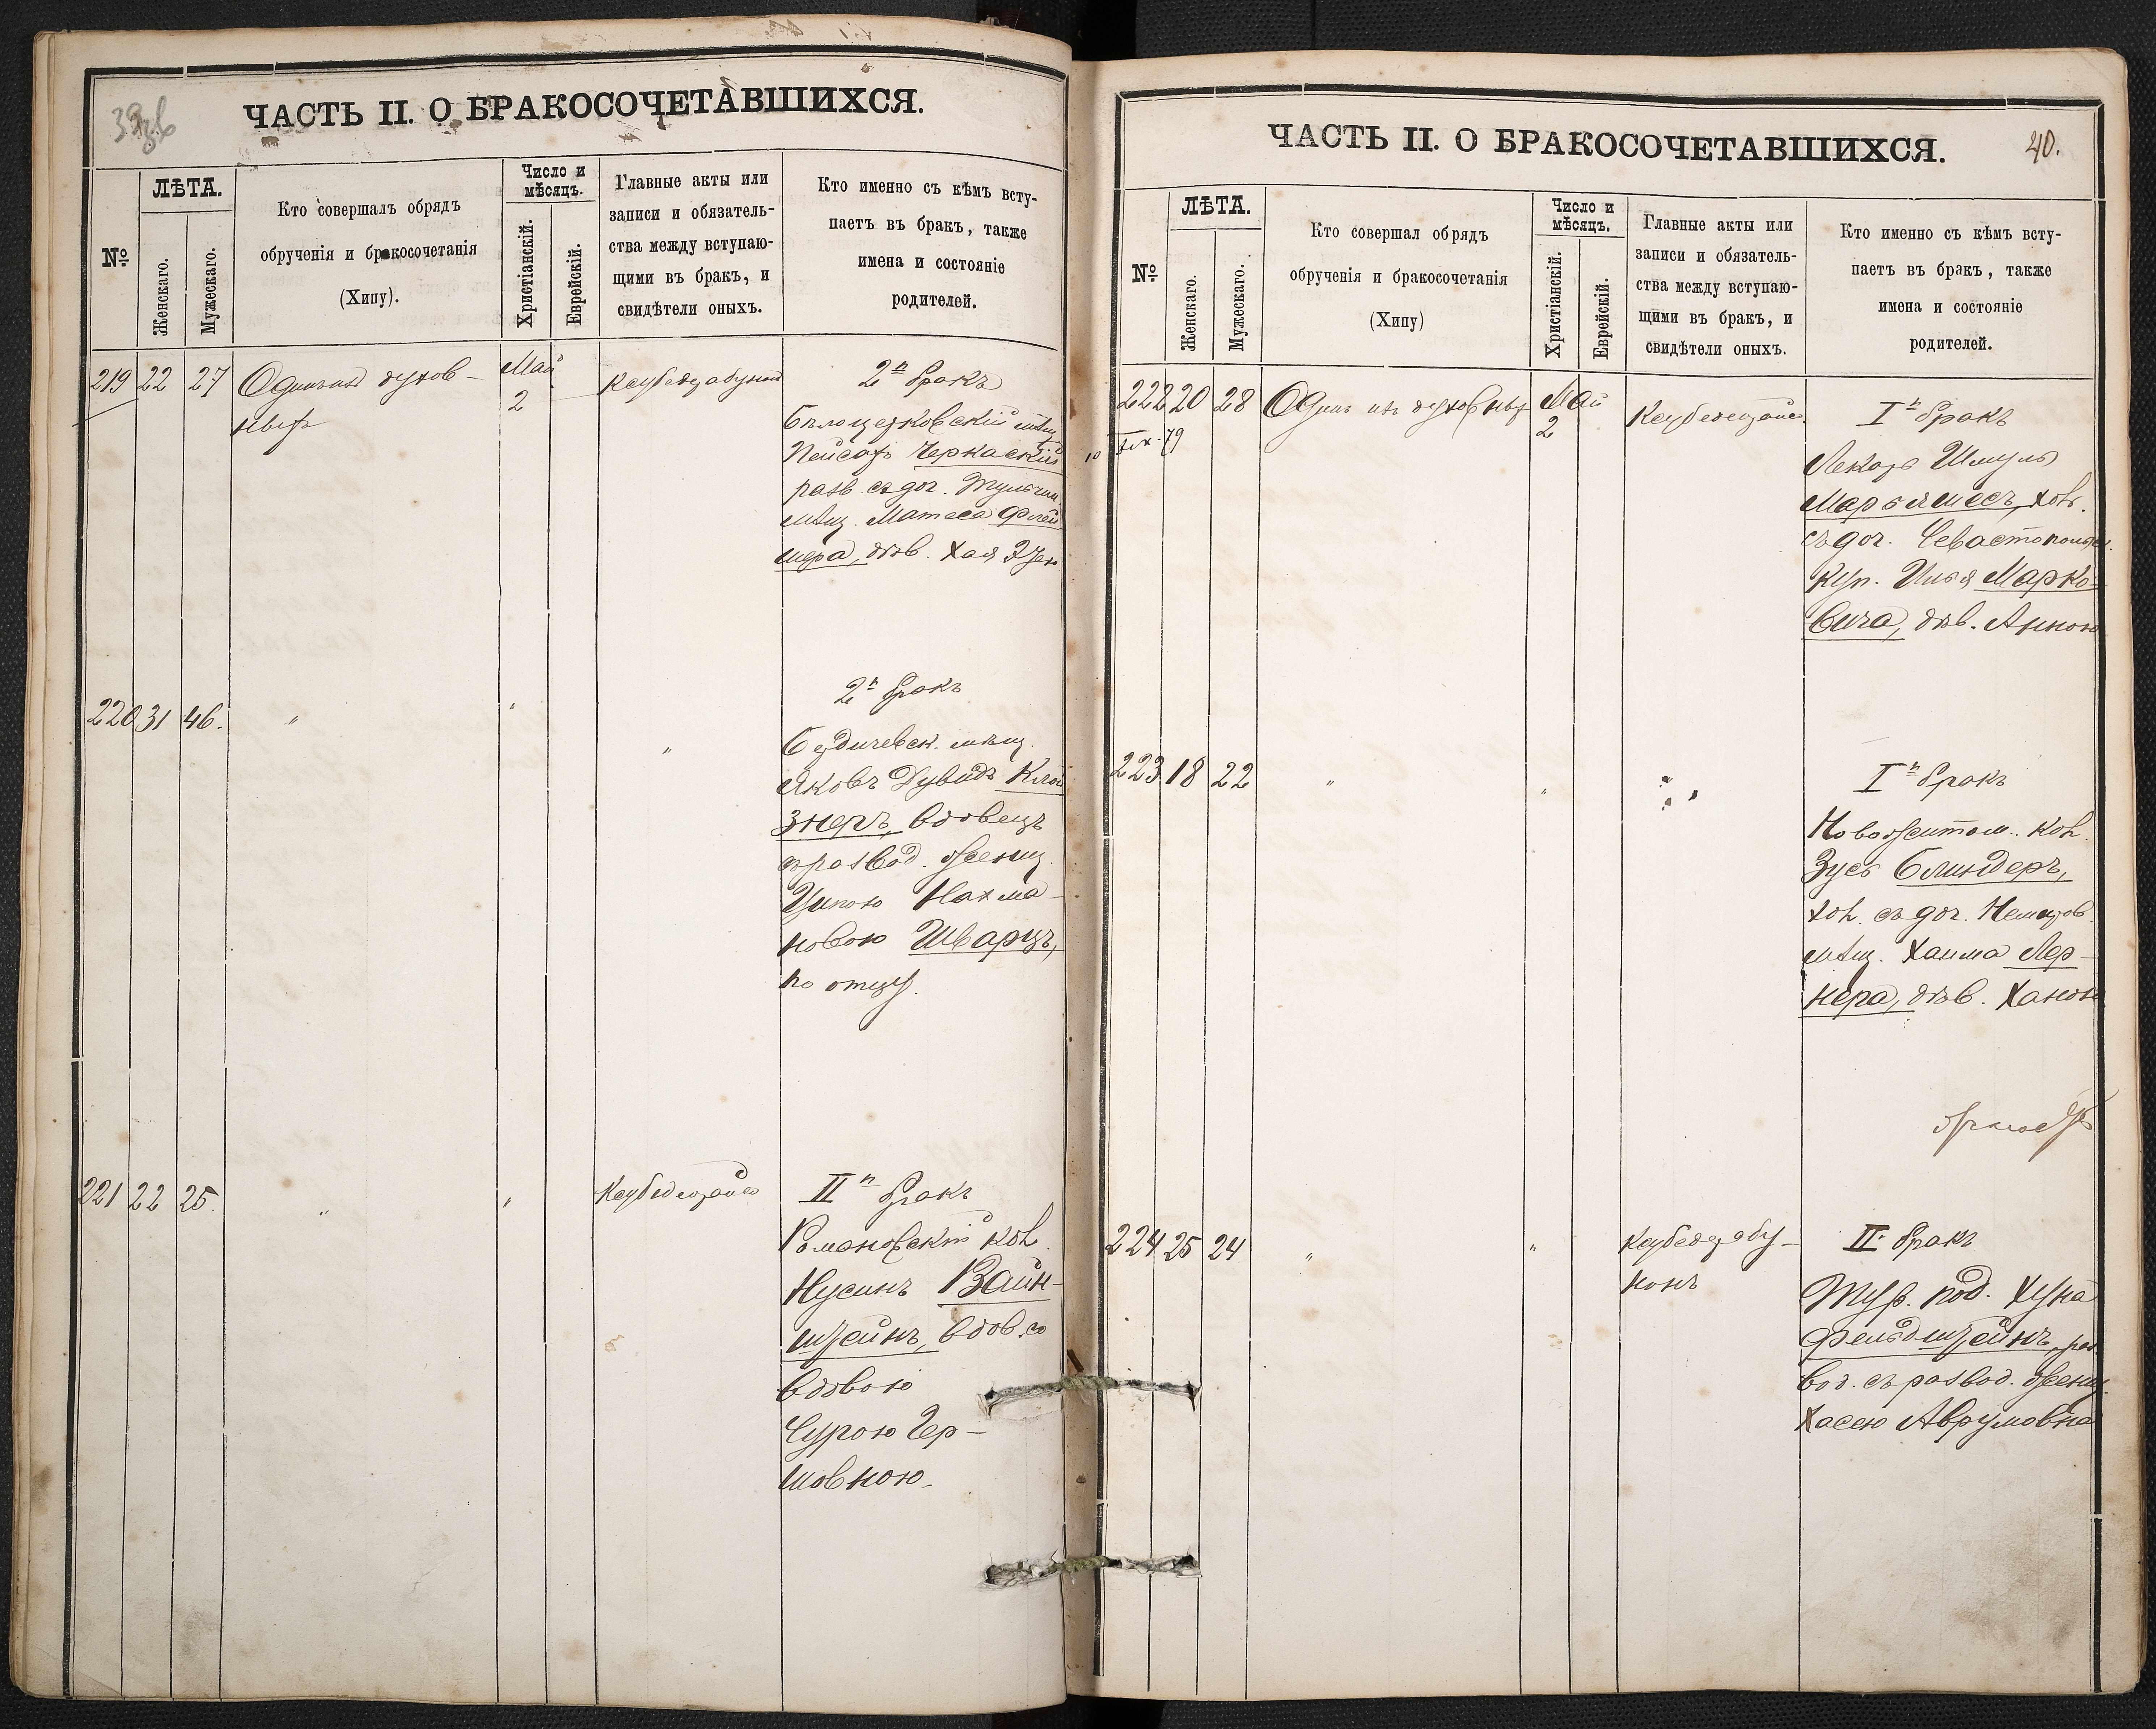 39зв
ЧАСТЬ II. О БРАКОСОЧЕТАВШИХСЯ.
№
ЛѢТА.
Женскаго.
Мужескаго.
Кто совершалъ обрядъ
обрученія и бракосочетанія
(Хипу).
Число и
мѣсяцъ.
Христіанскій.
Еврейскій.
Главные акты или
записи и обязатель-
ства между вступаю-
щими въ бракъ, и
свидѣтели оныхъ.
Кто именно съ кѣмъ всту-
паетъ въ бракъ, также
имена и состояніе
родителей.
219 22 27
духов-
ныхъ
Май
2
2й бракъ
Бѣлоцерковскій мѣщ
Пейсахъ Черкаскій
разв. съ доч. Тульчин
мѣщ. Матеса Флей
шера, дѣв. Хая
220 31 46.
"
"
"
2й бракъ
Бердичевск. мѣщ.
Яковъ Дувидъ Клей
знеръ, вдовецъ
съ развод. женщ.
Ципою Нахма-
новою Шварцъ,
по отцу.
221 22 25.
"
"
IIй бракъ
Романовскій кол.
Нусинъ Вайн-
штейнъ, вдов. со
вдовою
Сурою Гер-
шовною.
40.
ЧАСТЬ II. О БРАКОСОЧЕТАВШИХСЯ.
№
ЛѢТА.
Женскаго.
Мужескаго.
Кто совершал обрядъ
обрученія и бракосочетанія
(Хипу)
Число и
мѣсяцъ.
Христіанскій.
Еврейскій.
Главные акты или
записи и обязатель-
ства между вступаю-
щими въ бракъ, и
свидѣтели оныхъ.
Кто именно съ кѣмъ всту-
паетъ въ бракъ, также
имена и состояніе
родителей.
222 20 28
Одинъ изъ духовныхъ
Май
2
Iй бракъ
Лекарь Шмуль
Марьямесъ, хол.
съ доч. Севастопольск.
куп. Илья Марко-
вича, дѣв. Анною
223 18 22
"
"
"
Iй бракъ
Новожитом. кол.
Зусь Блиндеръ,
хол. съ доч. Немиров.
мѣщ. Хаима Лер-
нера, дѣв. Ханою
224 25 24
"
"
II. бракъ
Тур. под. Хуна
Фельдштейнъ, раз
вод. съ развод. женщ.
Хасею Аврумовна